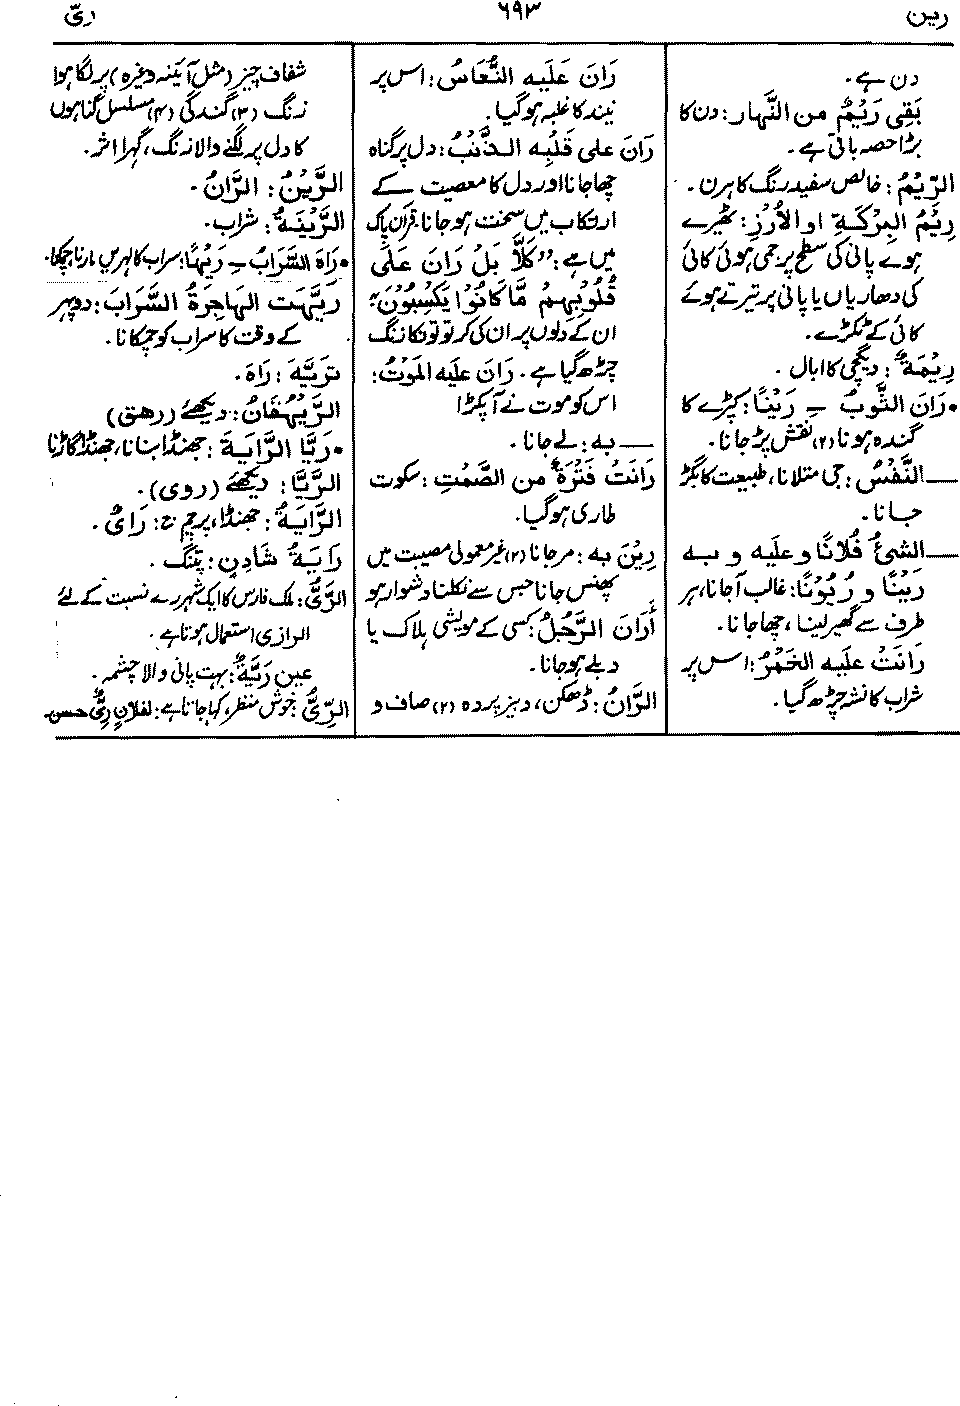 رین
۶۹۳
ریّ
دن ہے۔
بَقِی رَیْمٌ من النَّهار: دن کا
بڑا حصہ باقی ہے۔
الرِّیْمُ: خالص سفید رنگ کا ہرن۔
رِیْمُ البِرْكَةِ او الأَرُزِ: ٹھیرے
ہوے پانی کی سطح پر جمی ہوئی کائی
کی دھاریاں یا پانی پر تیرتے ہوئے
کائی کے ٹکڑے۔
رِیْمَةٌ: دیگچی کا ابال۔
•رَانَ الثَّوبُ ـِ رَیْنًا: کپڑے کا
گندہ ہونا (۲) نقش پڑجانا۔
—النَّفْسُ: جی متلانا، طبیعت کا بگڑ
جانا۔
—الشیْءُ فُلَانًا و علیه و به
رَیْنًا و رُیُوْنًا: غالب آجانا، ہر
طرف سے گھیر لینا، چھاجانا۔
رَانَتْ علیه الخَمْرُ: اس پر
شراب کا نشہ چڑھ گیا۔
رَانَ عَلَیه النُّعَاسُ: اس پر
نیند کا غلبہ ہوگیا۔
رَانَ علی قَلْبِه الذَّنْبُ: دل پر گناہ
چھاجانا اور دل کا معصیت کے
ارتکاب میں سخت ہوجانا. قرآن پاک
میں ہے: "كَلَّا بَلْ رَانَ عَلَى
قُلُوبِهِمْ مَّا كَانُوْا يَكْسِبُوْنَ"
ان کے دلوں پر ان کی کرتوتوں کا زنگ
چڑھ گیا ہے۔ رَانَ علیه المَوْتُ:
اس کو موت نے آپکڑا
— به: لے جانا۔
رَانَتْ فَتْرَةٌ من الصَّمْتِ: سکوت
طاری ہوگیا۔
رِیْنَ به: مرجانا (۲) غیر معمولی مصیبت میں
پھنس جانا جس سے نکلنا دشوار ہو
أَرَانَ الرَّجُلُ: کسی کے مویشی ہلاک یا
دبلے ہوجانا۔
الرَّانُ: ڈھکن، دبیز پردہ (۲) صاف و
شفاف چیز (مثل آئینہ وغیرہ) پر لگا ہوا
زنگ (۳) گندگی (۴) مسلسل گناہوں
کا دل پر لگنے والا زنگ، گہرا اثر۔
الرَّیْنُ: الرَّانُ۔
الرَّیْنَةُ: شراب۔
•رَاهَ السَّرَابُ ـِ رَیْهًا: سراب کا لہریں مارنا چمکنا۔
رَیَّهَت الهَاجِرَةُ السَّرَابَ: دوپہر
کے وقت کا سراب کو چمکانا۔
تَرَیَّهَ: رَاهَ۔
الرَّیْهُقَانُ: دیکھئے (رهق)
•رَیَّا الرَّایَةَ: جھنڈا بنانا، جھنڈا گاڑنا
الرَّیَّا: دیکھئے (روی)۔
الرَّایَةُ: جھنڈا، پرچم ج: رَایٌ۔
رَایَةُ شَادِنٍ: پتنگ۔
الرَّیُّ: ملک فارس کا ایک شہر رے نسبت کے لئے
الرازی استعمال ہوتا ہے۔
عین رَیَّةٌ: بہت پانی والا چشمہ۔
الرِّیُّ: خوش منظر، کہا جاتا ہے: لفلانٍ رِیٌّ حسن